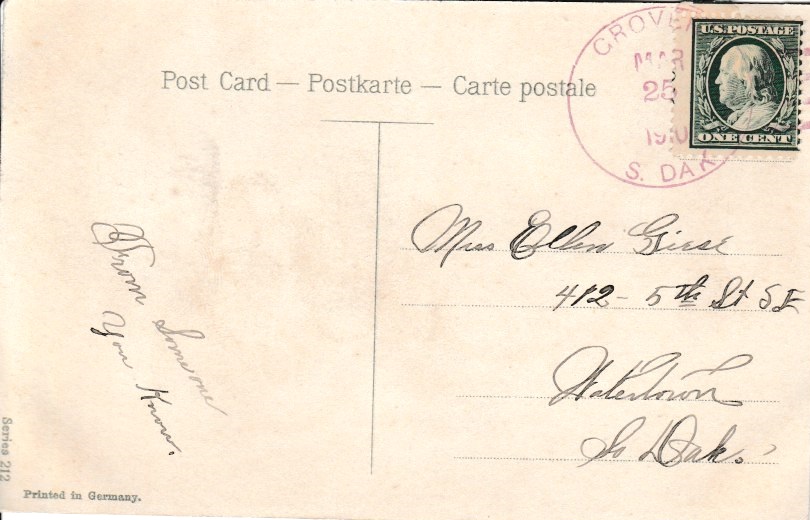 Post Card — Postkarte — Carte postale
GROVE
MAR
25
S. DAK
U.S. POSTAGE
ONE CENT
Miss Ellen Giese
412 - 5th St SE
Watertown
So Dak.
From Someone
You Know.
Series 212
Printed in Germany.